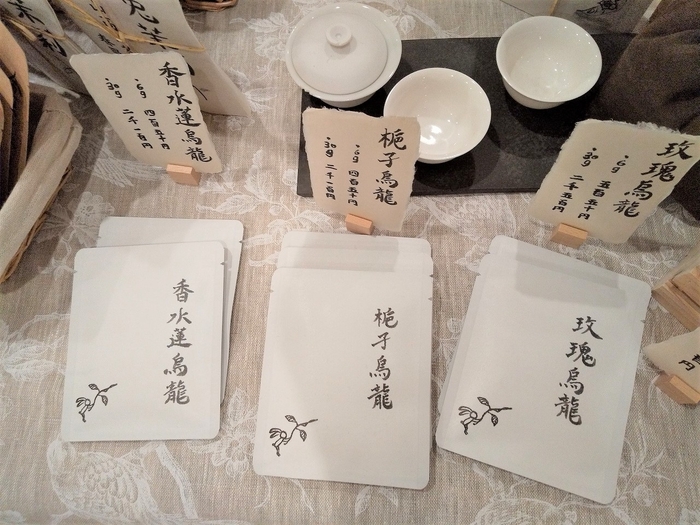 茉莉
香水蓮烏龍
・6g 四百五十円
・30g 二千一百円
梔子烏龍
・6g 四百五十円
・30g 二千一百円
玫瑰烏龍
・6g 五百五十円
・30g 二千五百円
香水蓮烏龍
梔子烏龍
玫瑰烏龍
円